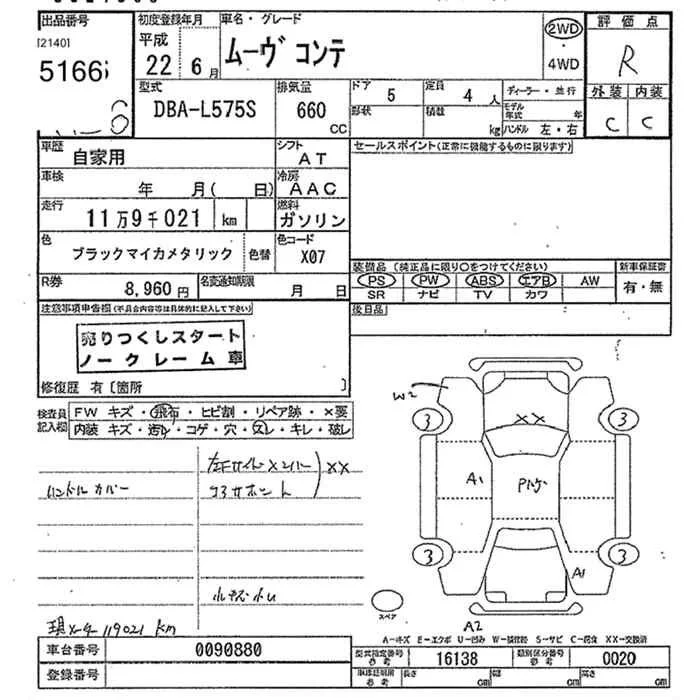 出品番号
初度登録年月
車名・グレード
評価点
[2140]
平成
22 年 6月
ムーヴ コンテ
2WD
・
4WD
R
5166
型式
DBA-L575S
排気量
660
CC
ドア
5
定員
4 人
ディーラー・並行
外装
内装
形状
積載
kg
モデル年式
年
ハンドル 左・右
C
C
車歴
自家用
シフト
AT
セールスポイント(正常に機能するものに限ります)
車検
年 月( 日)
冷房
AAC
走行
11万9千021 km
燃料
ガソリン
色
ブラックマイカメタリック
色替
色コード
X07
装備品 (純正品に限り○をつけてください)
新車保証書
R券
8,960円
名変通知期限
月 日
PS
PW
ABS
エアB
AW
有・無
SR
ナビ
TV
カワ
注意事項申告欄(不具合内容等は具体的に記入して下さい)
後日品
売りつくしスタート
ノークレーム車
修復歴 有〔箇所 〕
検査員記入欄
FW キズ・飛石・ヒビ割・リペア跡・×要
内装 キズ・汚れ・コゲ・穴・スレ・キレ・破レ
W2
3
3
XX
左Fサイドメンバー
XX
ハンドルカバー
ラジサポート
A1
3
3
A1
小キズ・小凹
スペア
A2
現メーター 119021 km
A-キズ E-エクボ U-凹み W-補修跡 S-サビ C-腐食 XX-交換済
車台番号
0090880
型式指定番号
参考
16138
類別区分番号
参考
0020
登録番号
参考
長さ
cm
幅
cm
高さ
cm